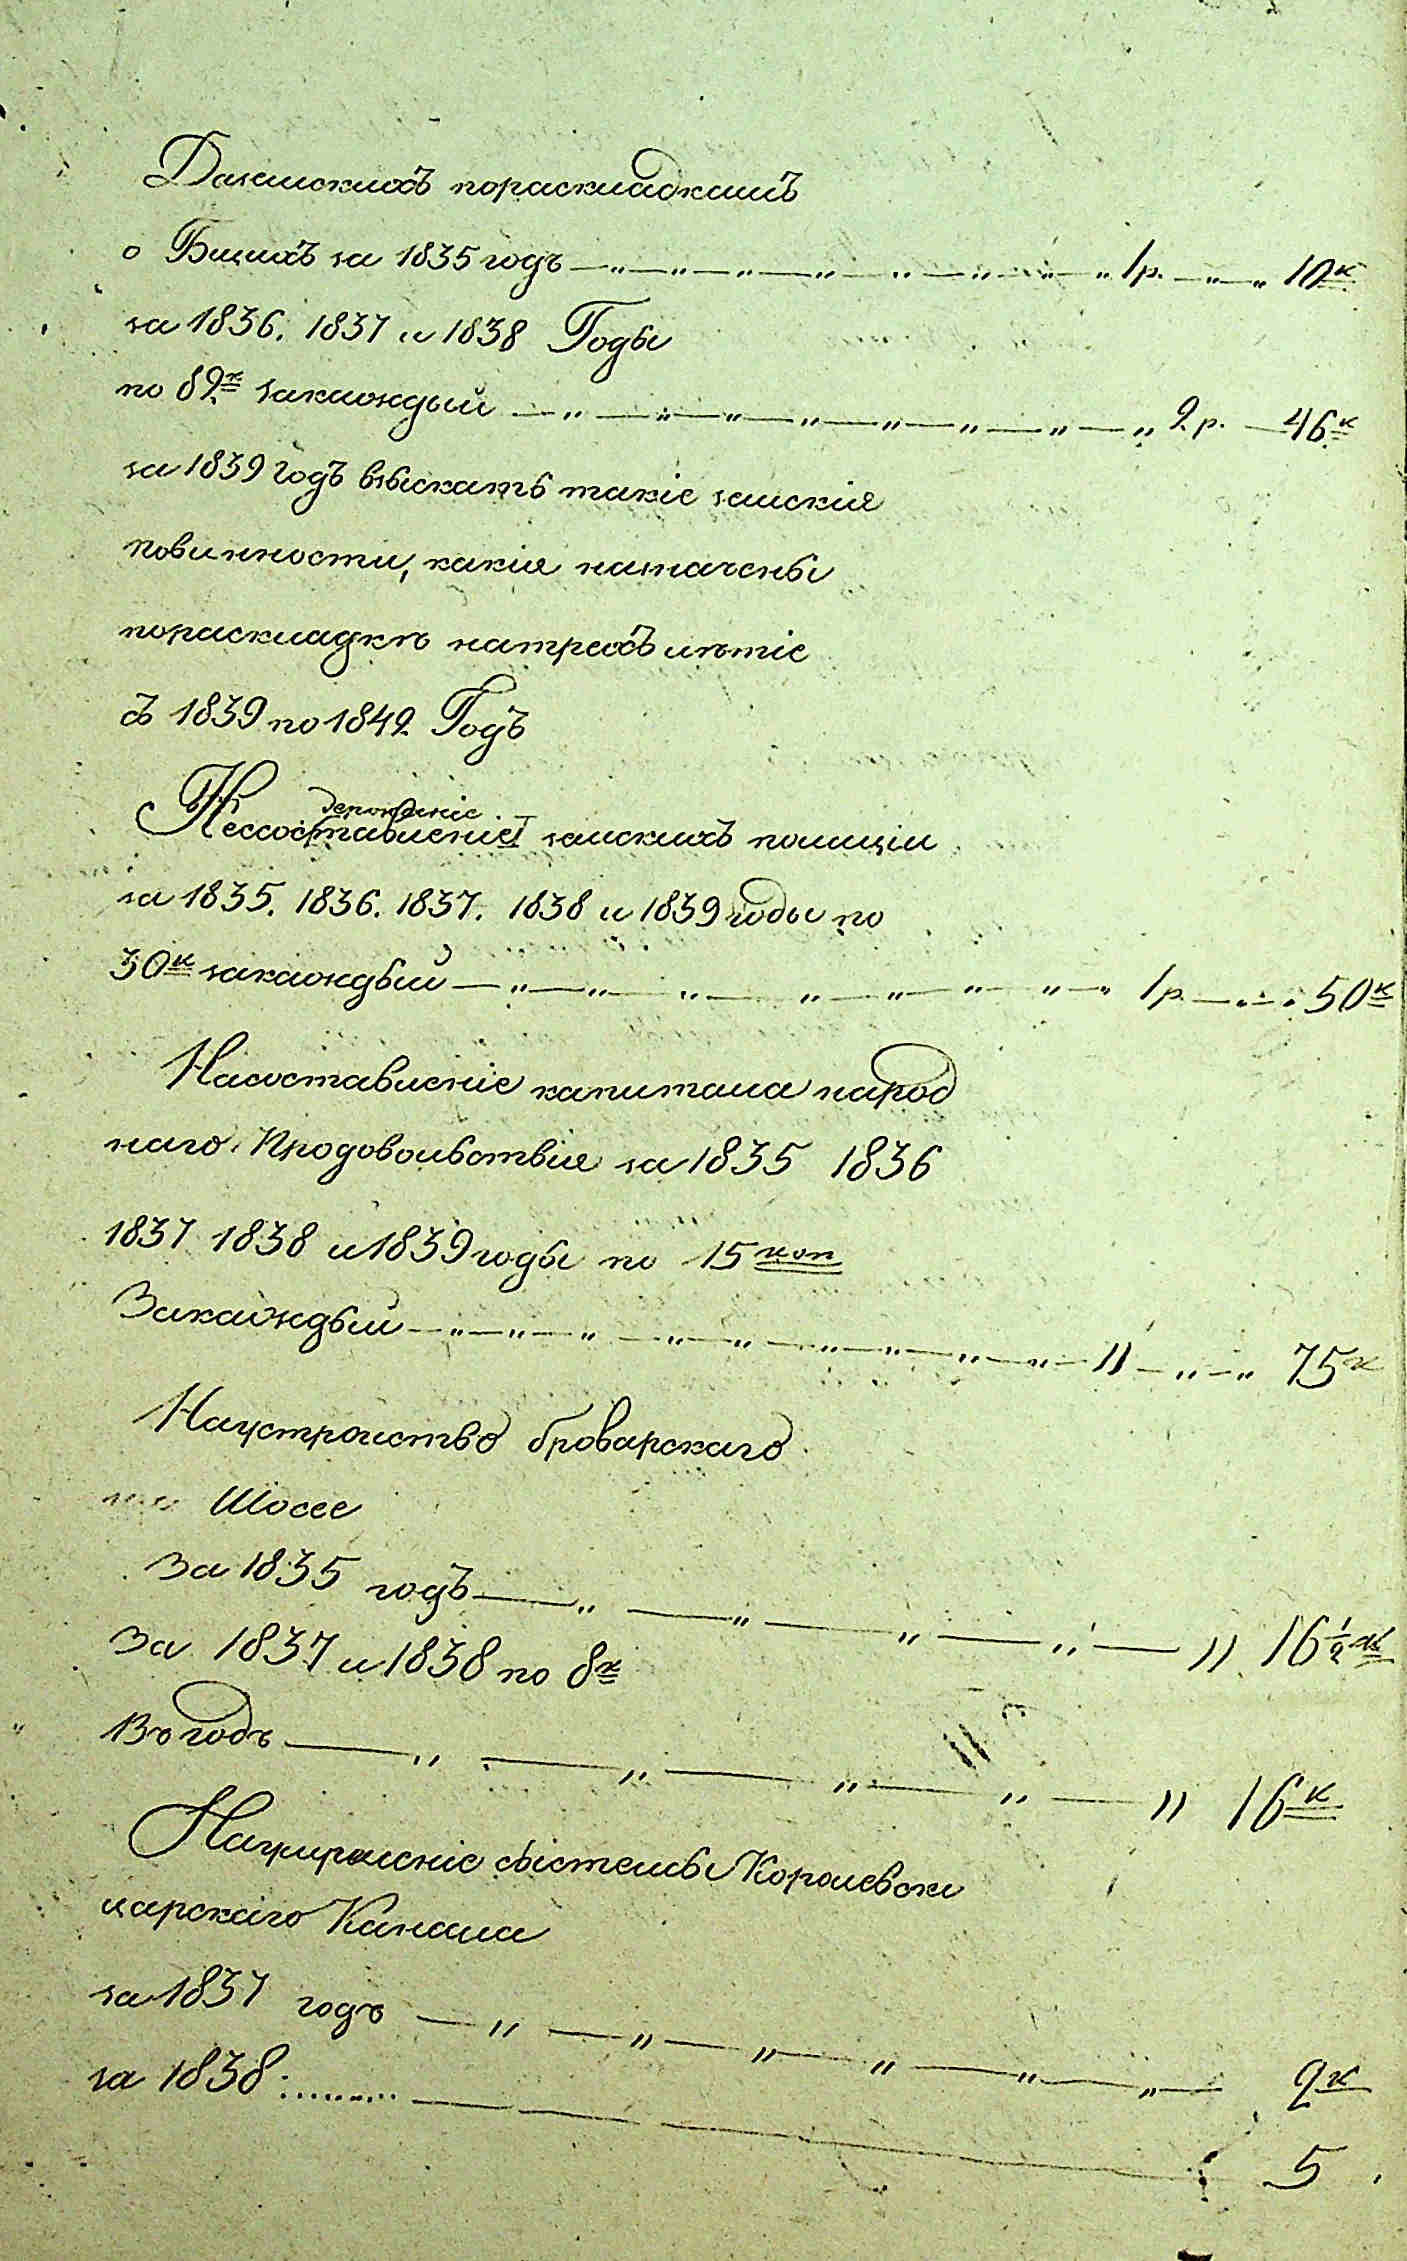 Даземскихъ пораскладкамъ
о Бцихъ за 1835 годъ —„—„—„—„—„—„—„—„ 1р. —„—„ 10к
за 1836. 1837 и 1838 Годы
по 82к закаждый —„—„—„—„—„—„—„—„ 2р. — 46к
за 1839 годъ взыскать такіе земскія
повинности, какія назначены
пораскладкѣ натрехъ лѣтіе
съ 1839 по 1842 Годъ
держаніе
земскихъ полиціи
за 1835. 1836. 1837. 1838 и 1839 годы по
30к закаждый —„—„—„—„—„—„—„—„ 1р. —„—„ 50к
Насоставленіе капитала народ
наго Продовольствія за 1835 1836
1837 1838 и 1839 годы по 15 коп
Закаждый —„—„—„—„—„—„—„—„—„— „ —„—„ 75к
Наустроиство броварскаго
Шосее
За 1835 годъ —„—„—„—„— „ 16½к
За 1837 и 1838 по 8к
Въ годъ —„—„—„—„— „ 16к
сыстемы Королевски
царскаго Канала
за 1837 годъ —„—„—„—„—„—„— 2к
за 1838 ........ — 5